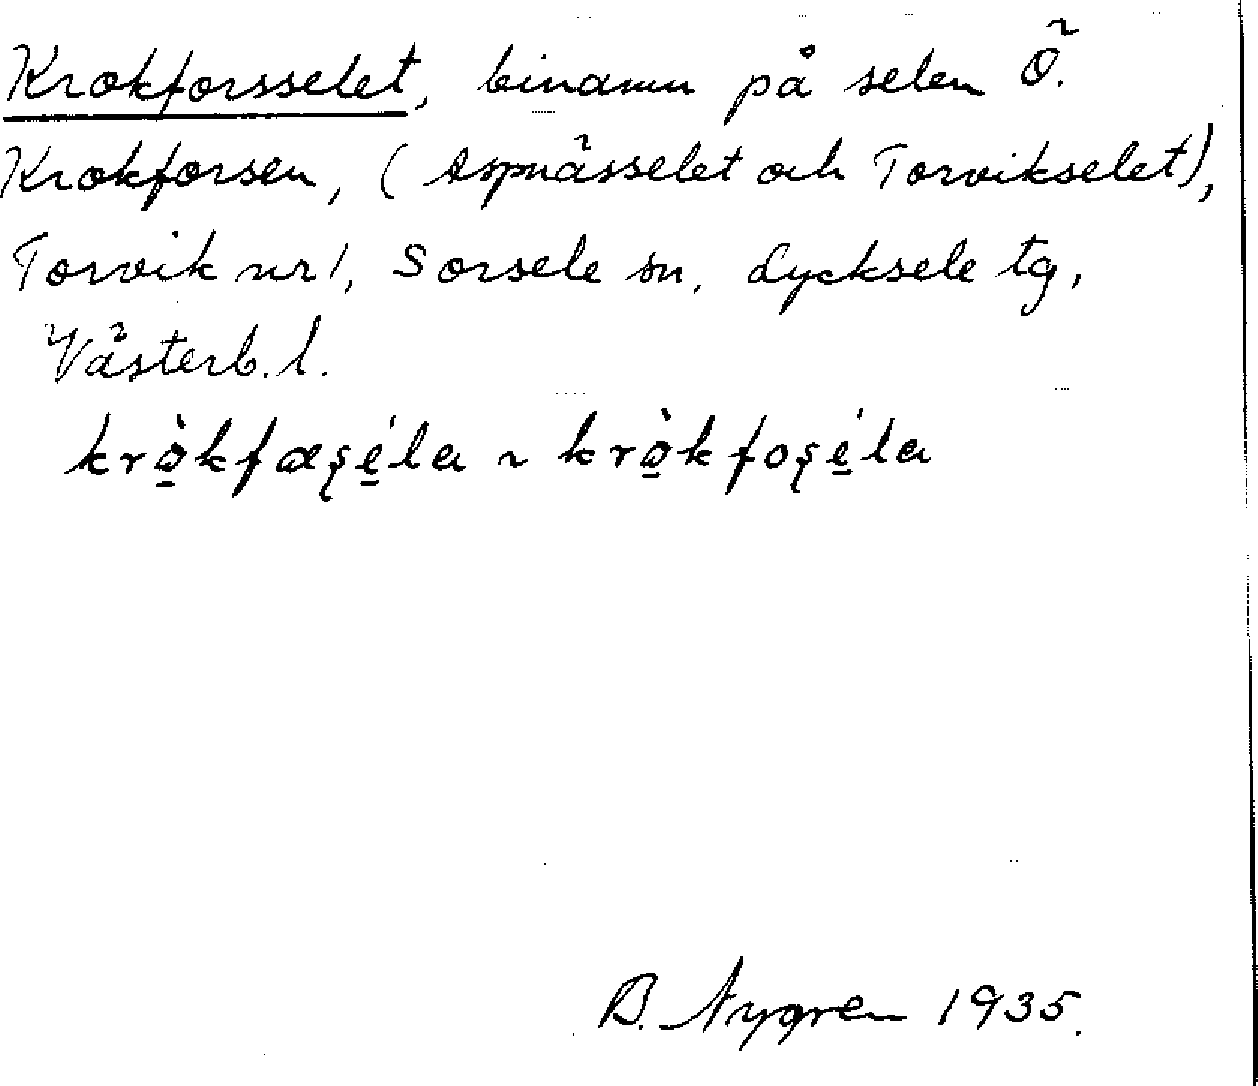 Krokforsselet, binamn på selen Ö.
Krokforsen, (Aspnässelet och Torvikselet),
Torvik nr 1, Sorsele sn, Lycksele tg,
Västerb. l.
krò̱kfæʂé̱la ~ krò̱kfoʂé̱la
B. Nygren 1935.